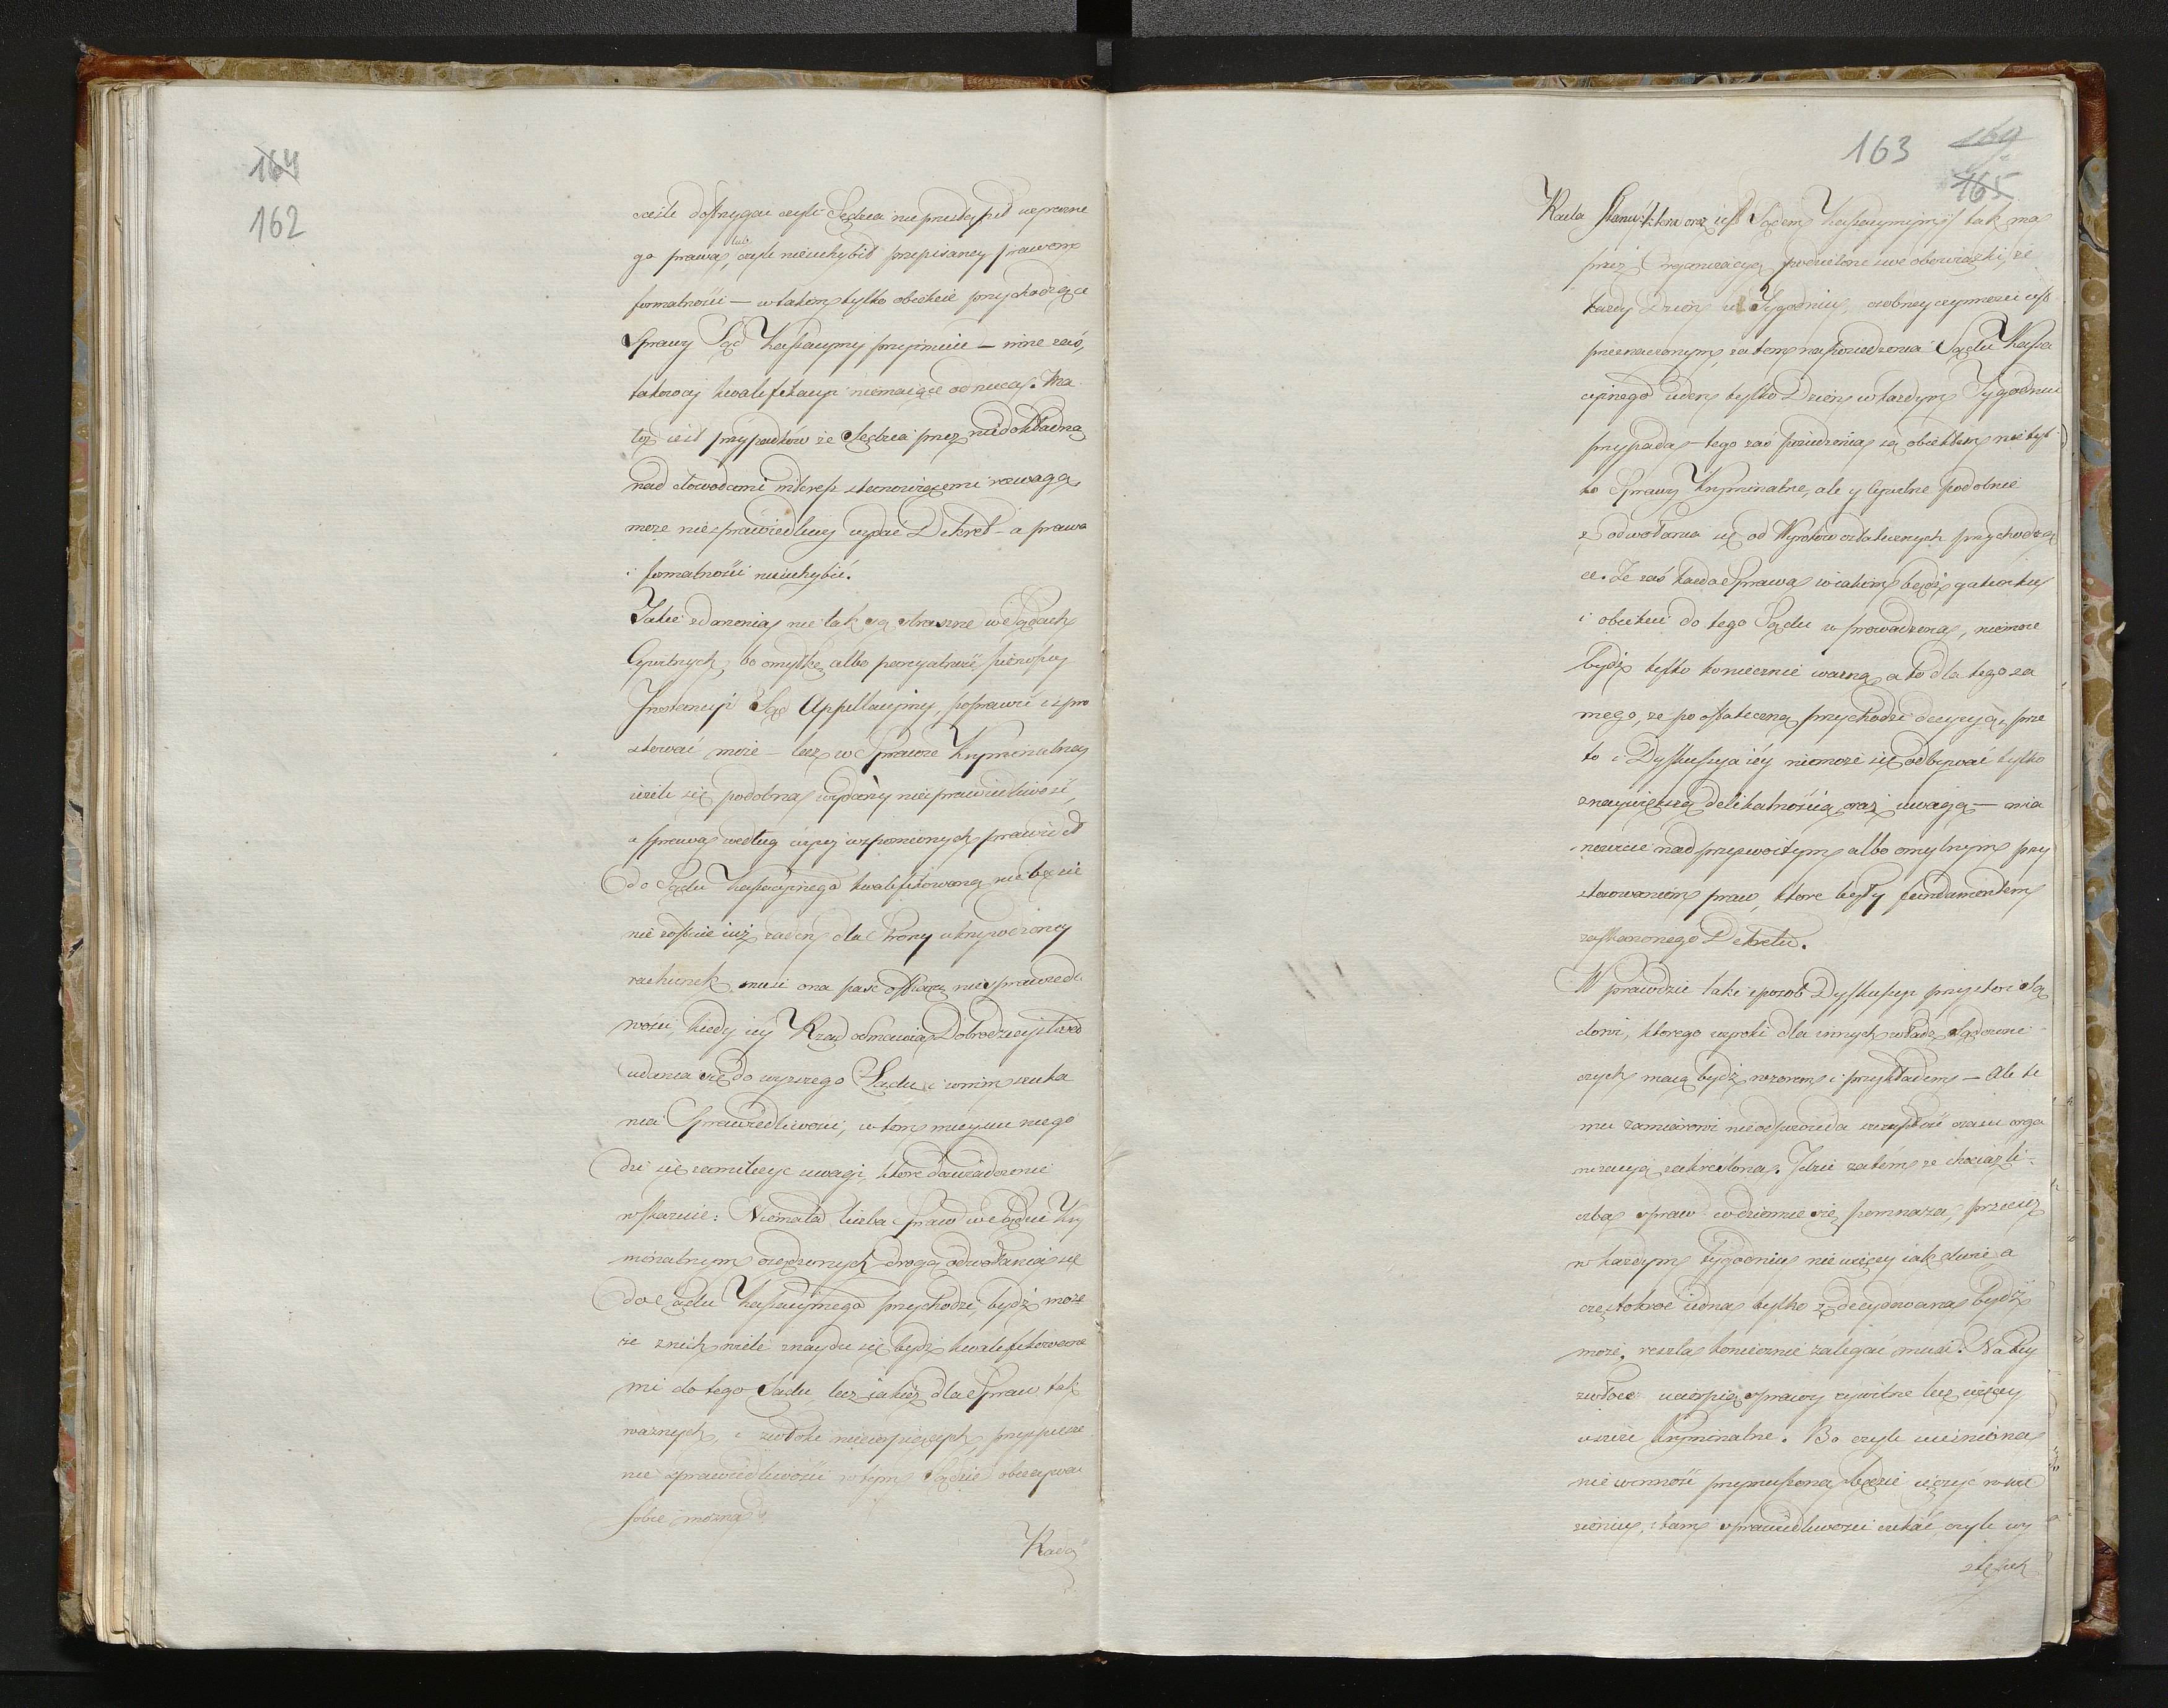 164
162
ściśle dostrzegać czyli Sędzia nie przestąpił wyraźne
go prawa, lub czyli nieuchybił przepisaney prawem
formalności — w takim tylko obiekcie przychodzące
Sprawy Sąd Kassacyiny przyimuie — inne zaś,
takowey kwalifikacyi niemaiące odrzuca. Wie
leż iest przypadków że Sędzia przez niedokładną
nad dowodami interess stanowiącemi rozwagę,
może niesprawiedliwy wydać Dekret — a prawa
i formalności nieuchybić.
Takie zdarzenia nie tak są straszne w Sądach
Cywilnych, bo omyłkę albo parcyalność pierwszey
Instancyi Sąd Appellacyiny, poprawić i spro
stować może — lecz w Sprawie Kryminalney
ieżeli się podobna wydarzy niesprawiedliwość,
a sprawa według wyżey wspomnionych prawideł
do Sądu Kassacyinego kwalifikowaną nie będzie
nie zostaie iuż żaden dla Strony ukrzywdzoney
rachunek, musi ona paść ofiarą niesprawiedli
wości, kiedy iey Rząd odmawia Dobrodzieystwa
udania się do wyższego Sądu i w nim szuka
nia Sprawiedliwości, w tem mieyscu niego
dzi się zamilczyć uwagi, które doświadczenie
wskazuie: Niemała liczba Spraw w Sądzie Kry
minalnym osądzonych drogą odwołania się
do Sądu Kassacyinego przychodzi, bydź może
że z nich wiele znaydzie się bydź kwalifikowane
mi do tego Sądu, lecz iakież dla Spraw tak
ważnych, i zwłoki niecierpiących, przyspiesze
nie sprawiedliwości w tym Sądzie obiecywać
sobie można?
Rada
163 164
165
Rada Stanu, która oraz iest Sądem Kassacyinym tak ma
przez Organizacyą podzielone swe obowiązki, że
każdy Dzień w Tygodniu, osobney czynności iest
przeznaczonym, zatem na posiedzenia Sądu Kassa
cyinego ieden tylko Dzień w każdym Tygodniu
przypada — tego zaś posiedzenia są obiektem nie tyl
ko Sprawy Kryminalne, ale y Cywilne podobnie
z odwołania się od Wyroków ostatecznych przychodzą
ce. Że zaś każda Sprawa w iakim bądź gatunku
i obiekcie do tego Sądu wprowadzona, niemoże
bydź tylko koniecznie ważną, a to dla tego sa
mego, że po ostateczną przychodzi decyzyą, prze
to i Dyskussya iéy niemoże się odbywać tylko
z naywiększą delikatnością oraz uwagą — mia
nowicie nad przyzwoitym albo omylnym przy
stosowaniem praw, które były fundamentem
zaskarżonego Dekretu.
W prawdzie taki sposób Dyskussyi przystoi Są
dowi, którego wyroki dla innych władz Sądowni
czych maią bydź wzorem i przykładem — Ale te
mu zamiarowi nieodpowiada szczupłość czasu orga
nizacyą zakreślona. Idzie zatem że chociaż li-
czba spraw codziennie się pomnaża, przecież
w każdym tygodniu nie więcey iak dwie a
częstokroć iedna tylko zdecydowana bydź
może, reszta koniecznie zalegać musi. Na tey
zwłoce ucierpią sprawy cywilne lecz więcey
ieszcze Kryminalne. Bo czyli uciśniona
niewinność przymuszona będzie ięczyć w wię
zieniu, i tam sprawiedliwości czekać, czyli wy
stępek